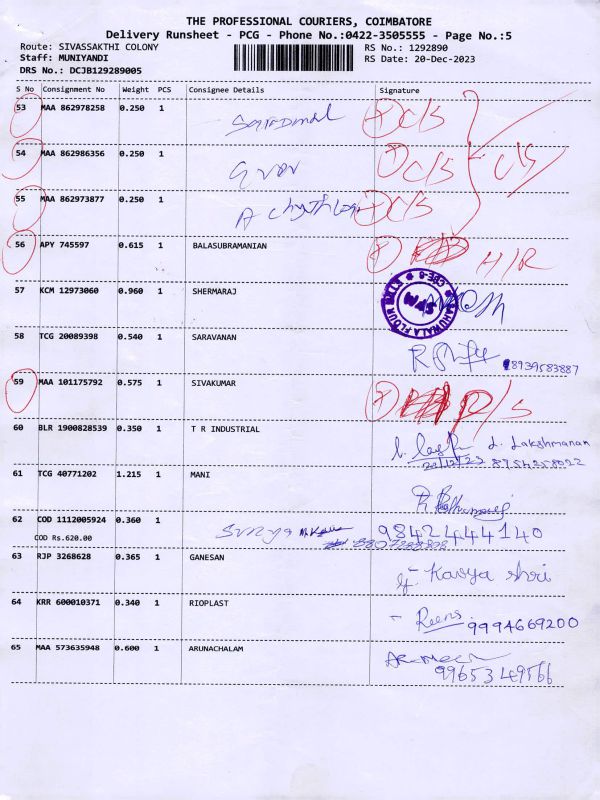 THE PROFESSIONAL COURIERS, COIMBATORE
Delivery Runsheet - PCG - Phone No.:0422-3505555 - Page No.:5
Route: SIVASSAKTHI COLONY RS No.: 1292890
Staff: MUNIYANDI RS Date: 20-Dec-2023
DRS No.: DCJB129289005
S No Consignment No Weight PCS Consignee Details Signature
53 MAA 862978258 0.250 1 C/S
54 MAA 862986356 0.250 1 C/S
55 MAA 862973877 0.250 1 C/S
56 APY 745597 0.615 1 BALASUBRAMANIAN H/R
57 KCM 12973060 0.960 1 SHERMARAJ
58 TCG 20089398 0.540 1 SARAVANAN
8939583887
59 MAA 101175792 0.575 1 SIVAKUMAR P/S
60 BLR 1900828539 0.350 1 T R INDUSTRIAL
L. Lakshmanan
20/12/23 8754258022
61 TCG 40771202 1.215 1 MANI
62 COD 1112005924 0.360 1 Surya 9842444140
COD Rs.620.00
63 RJP 3268628 0.365 1 GANESAN
Kavya shri
64 KRR 600010371 0.340 1 RIOPLAST
Reena 9994669200
65 MAA 573635948 0.600 1 ARUNACHALAM
9965349566